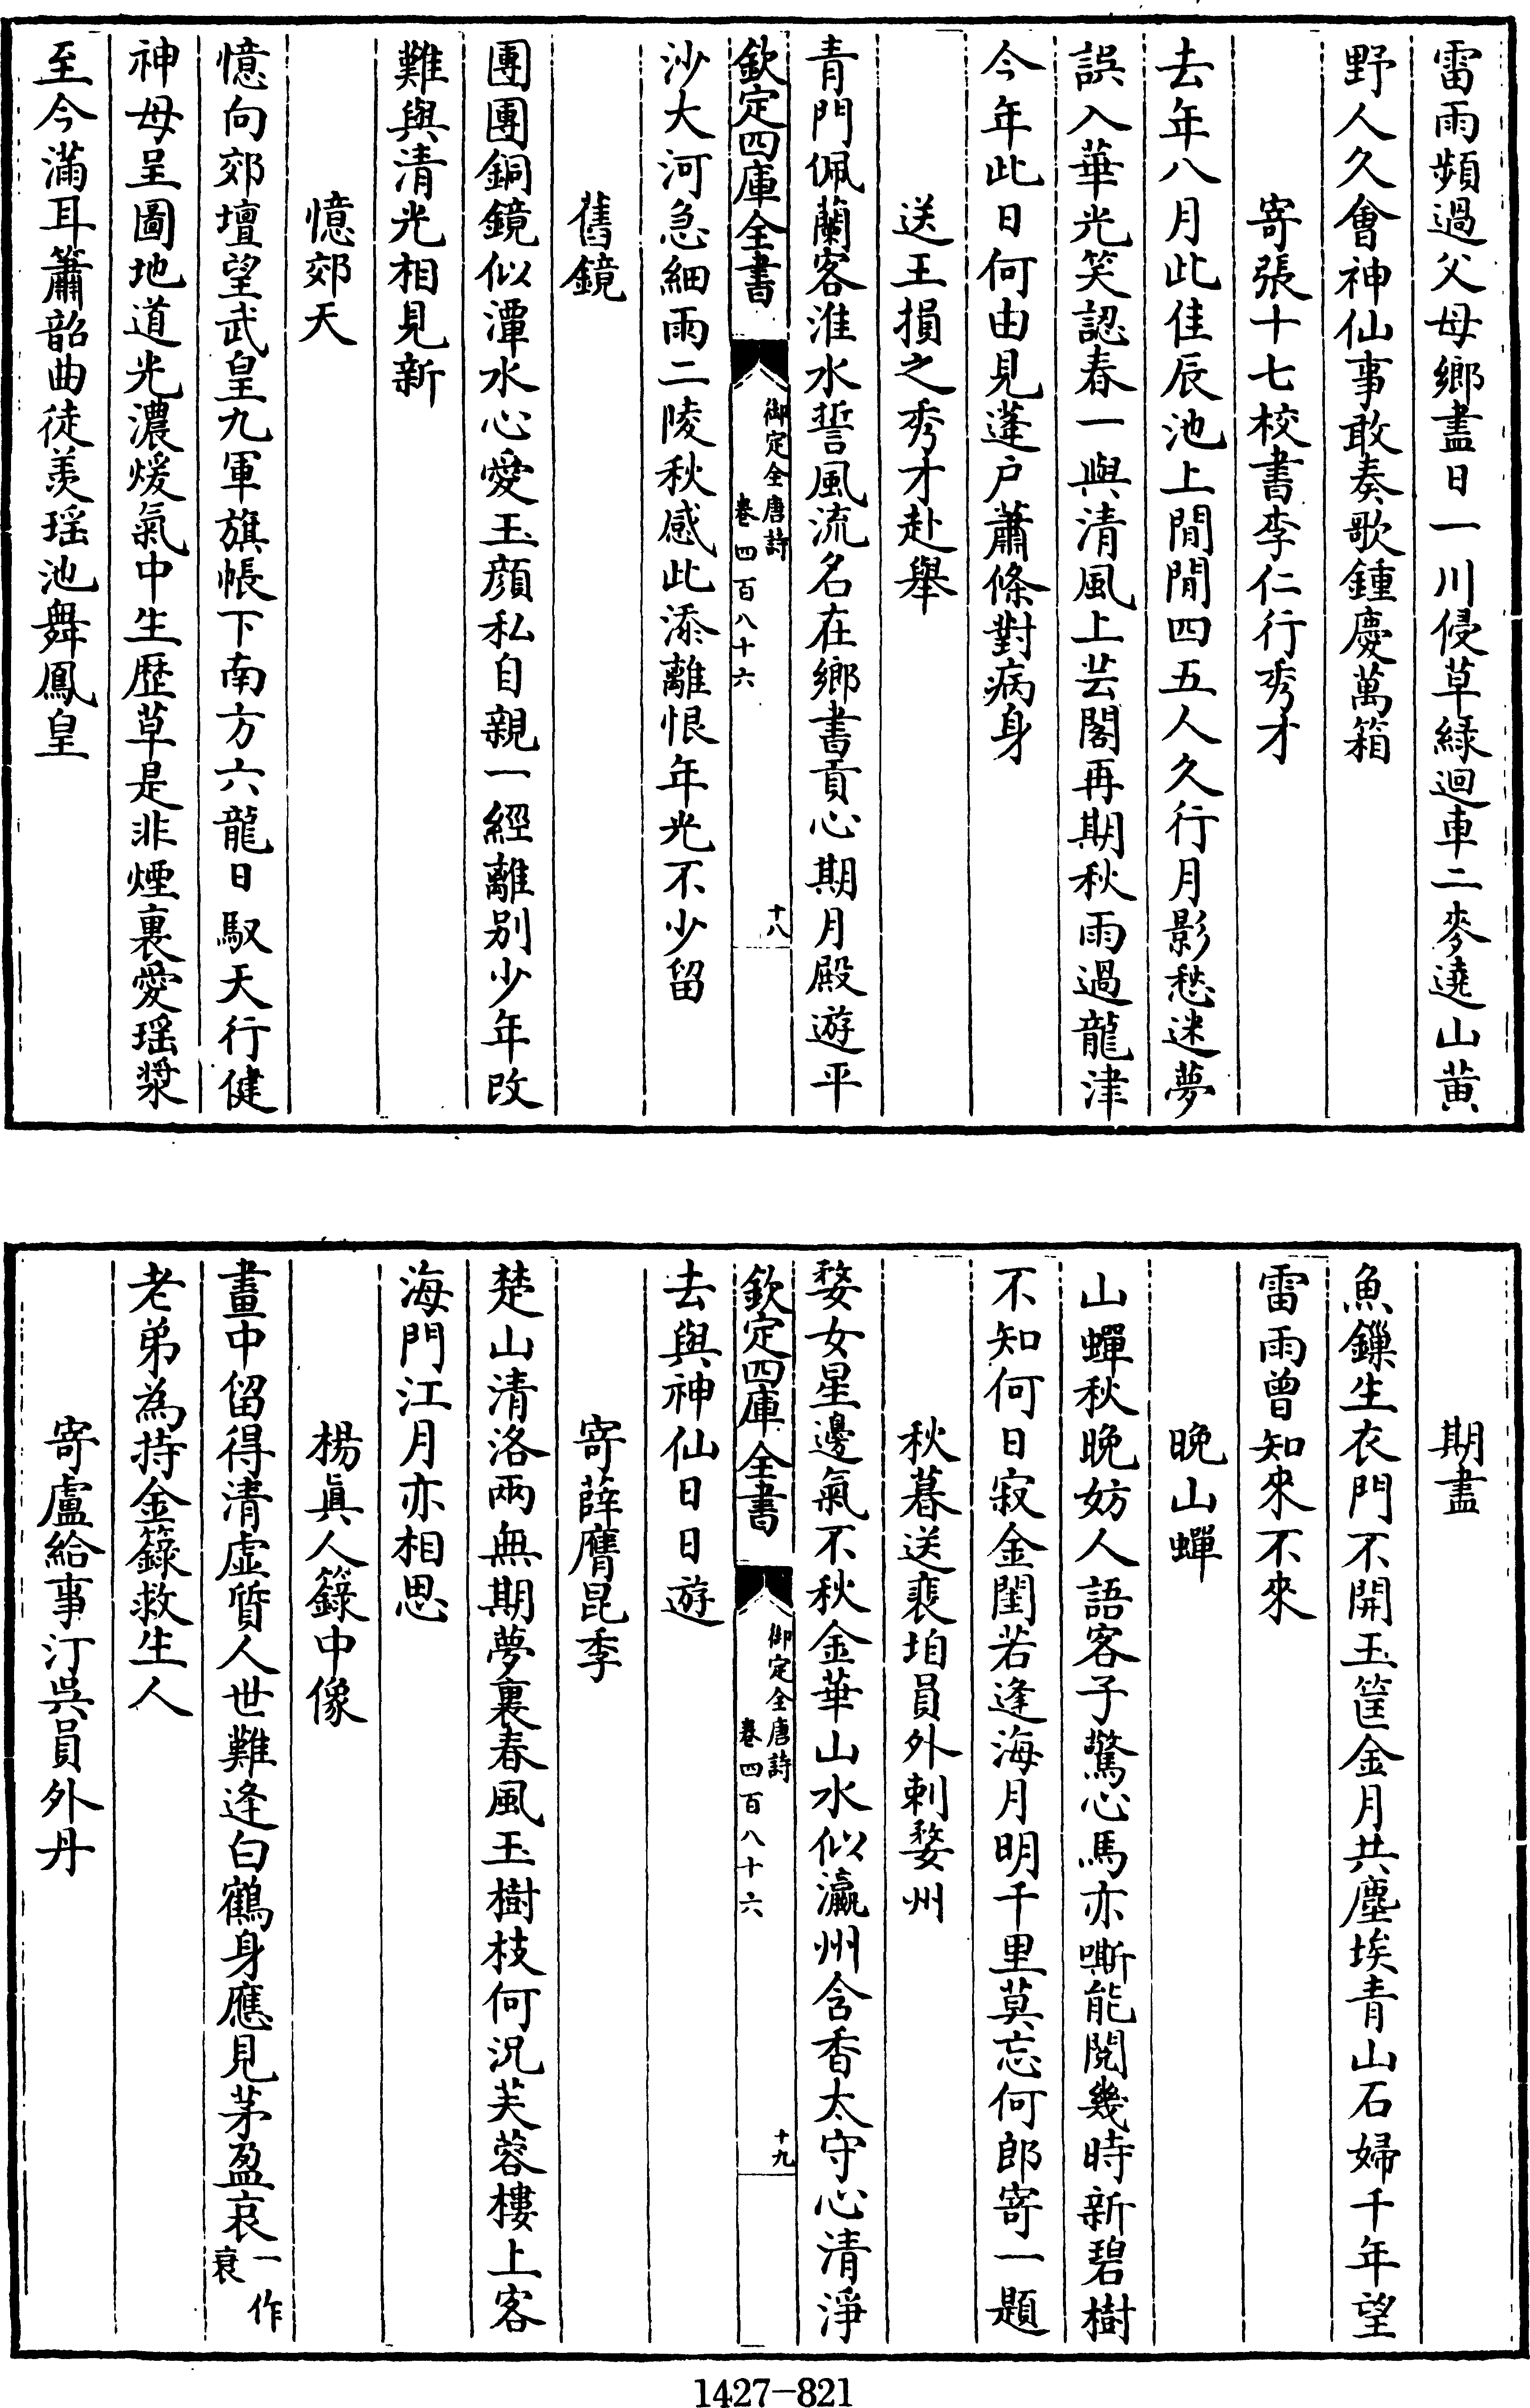 雷雨頻過父母鄉盡日一川侵草綠迴車二麥遶山黄
野人久會神仙事敢奏歌鍾慶萬箱
寄張十七校書李仁行秀才
去年八月此佳辰池上閒閒四五人久行月影愁迷夢
誤入華光笑認春一與清風上芸閣再期秋雨過龍津
今年此日何由見蓬户蕭條對病身
送王損之秀才赴舉
青門佩蘭客淮水誓風流名在鄉書貢心期月殿遊平
欽定四庫全書
御定全唐詩
卷四百八十六
十八
沙大河急細雨二陵秋感此添離恨年光不少留
舊鏡
團團銅鏡似潭水心愛玉顔私自親一經離别少年改
難與清光相見新
憶郊天
憶向郊壇望武皇九軍旗帳下南方六龍日馭天行健
神母呈圖地道光濃煖氣中生歴草是非煙裏愛瑶漿
至今滿耳簫韶曲徒羡瑶池舞鳳皇
期盡
魚鏁生衣門不開玉筐金月共塵埃青山石婦千年望
雷雨曾知來不來
晚山蟬
山蟬秋晚妨人語客子驚心馬亦嘶能閱幾時新碧樹
不知何日寂金閨若逢海月明千里莫忘何郎寄一題
秋暮送裴垍員外刺婺州
婺女星邊氣不秋金華山水似瀛州含香太守心清淨
欽定四庫全書
御定全唐詩
卷四百八十六
十九
去與神仙日日遊
寄薛膺昆季
楚山清洛兩無期夢裏春風玉樹枝何況芙蓉樓上客
海門江月亦相思
楊真人籙中像
畫中留得清虚質人世難逢白鶴身應見茅盈哀一作衰
老弟為持金籙救生人
寄盧給事汀吳員外丹
1427-821